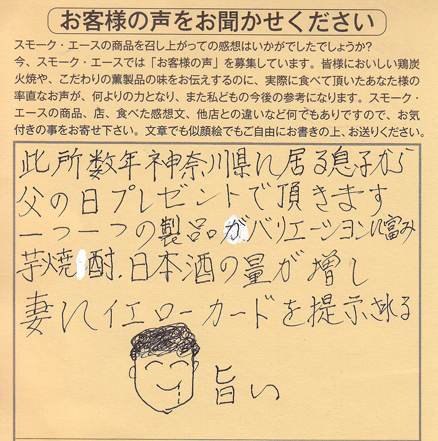 お客様の声をお聞かせください
スモーク・エースの商品を召し上がっての感想はいかがでしたでしょうか?
今、スモーク・エースでは「お客様の声」を募集しています。皆様においしい鶏炭
火焼や、こだわりの薫製品の味をお伝えするのに、実際に食べて頂いたあなた様の
率直なお声が、何よりの力となり、また私どもの今後の参考になります。スモーク・
エースの商品、店、食べた感想文、他店との違いなど何でもありですので、お気
付きの事をお寄せ下さい。文章でも似顔絵でもご自由にお書きの上、お送りください。
此所数年神奈川県に居る息子から
父の日プレゼントで頂きます
一つ一つの製品がバリエーションに富み
芋焼酎.日本酒の量が増し
妻にイエローカードを提示される
旨い